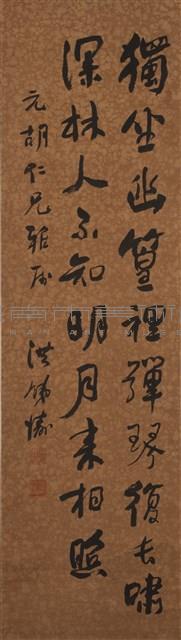 獨坐幽篁裡彈琴復長嘯
深林人不知明月來相照
元胡仁兄雅屬
洪鐵濤